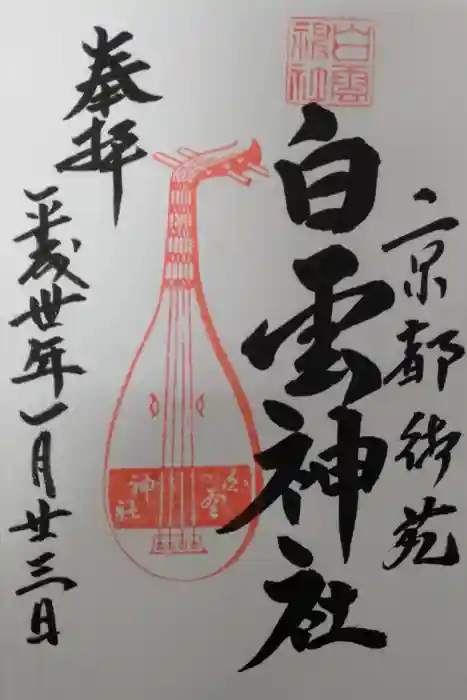 京都御苑
白雲神社
白雲神社
白雲神社
奉拝
平成卅年一月廿三日